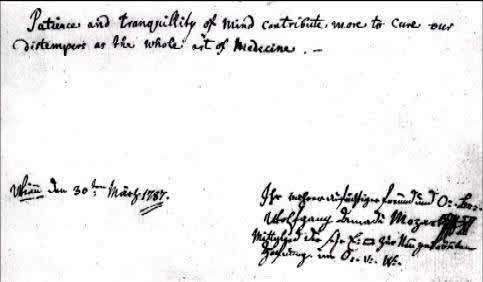 Patience and tranquillity of mind contribute more to cure our
distempers as the whole art of Medecine. —
Wien den 30ten März 1787.
Ihr wahrer aufrichtiger freund und O:
Wolfgang Amadè Mozart
Mitglied der
im O: V: W: